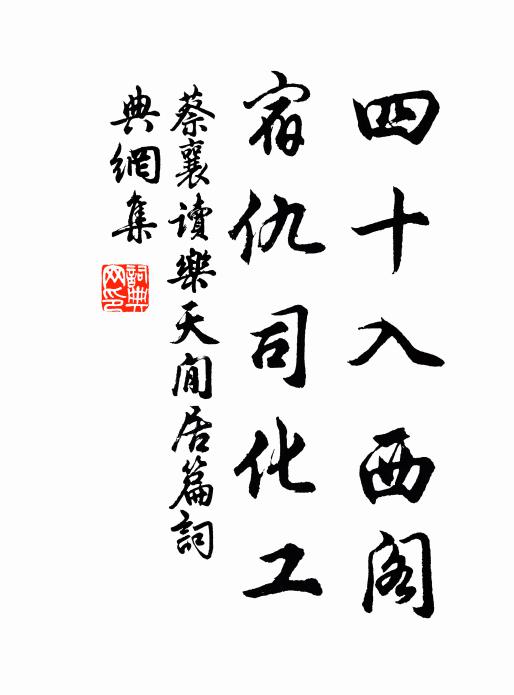 四十入西阁
宿仇司化工
蔡襄讀樂天閒居篇詞
典網集
詞典
网印